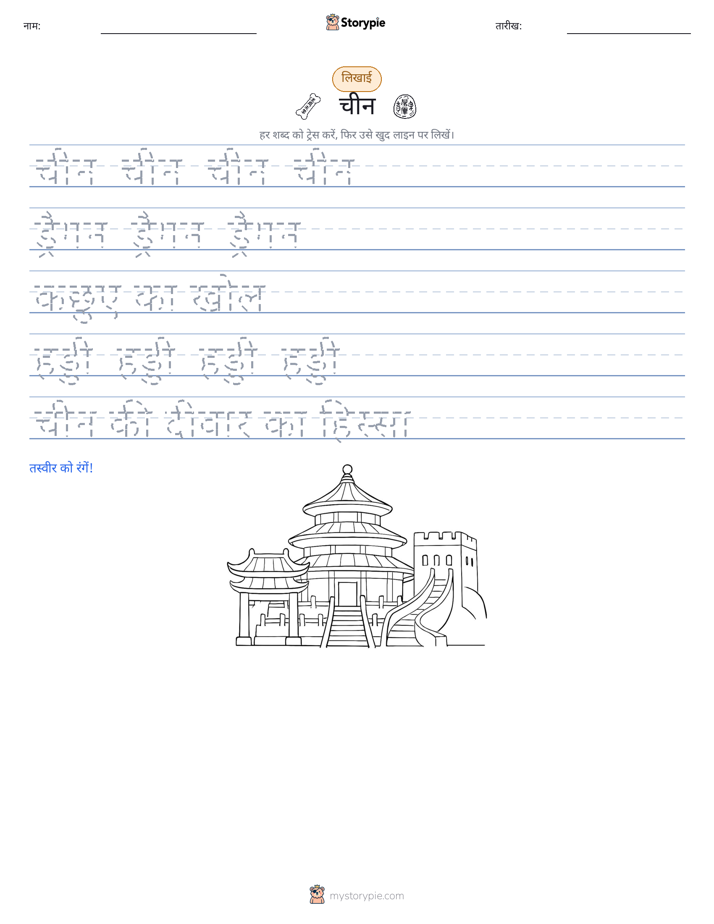 नाम:
Storypie
तारीख:
लिखाई
चीन
हर शब्द को ट्रेस करें, फिर उसे खुद लाइन पर लिखें।
चीन चीन चीन चीन
ड्रैगन ड्रैगन ड्रैगन
कछुए का खोल
हड्डी हड्डी हड्डी हड्डी
चीन की दीवार का हिस्सा
तस्वीर को रंगें!
mystorypie.com